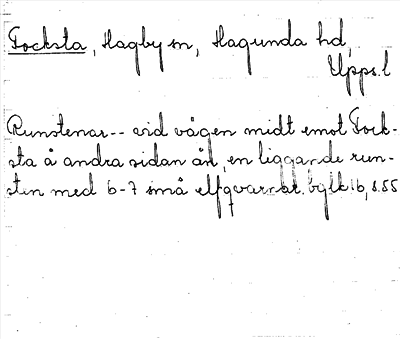 Focksta, Hagby sn, Hagunda hd,
Upps. l
Runstenar -- vid vägen midt emot Fock-
sta å andra sidan ån, en liggande run-
sten med 6-7 små elfqvarnar. 16, s. 55